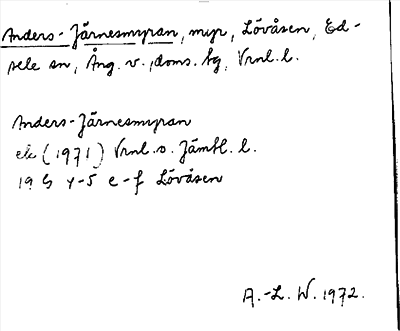 Anders-Järnesmyran, myr, Lövåsen, Ed-
sele sn, Ång. v., doms. bg, Vrnl. l.
Anders-Järnesmyran
ek (1971) Vrnl. o. Jämtl. l.
19 G 4-5 e-f Lövåsen
A.-L. W. 1972.